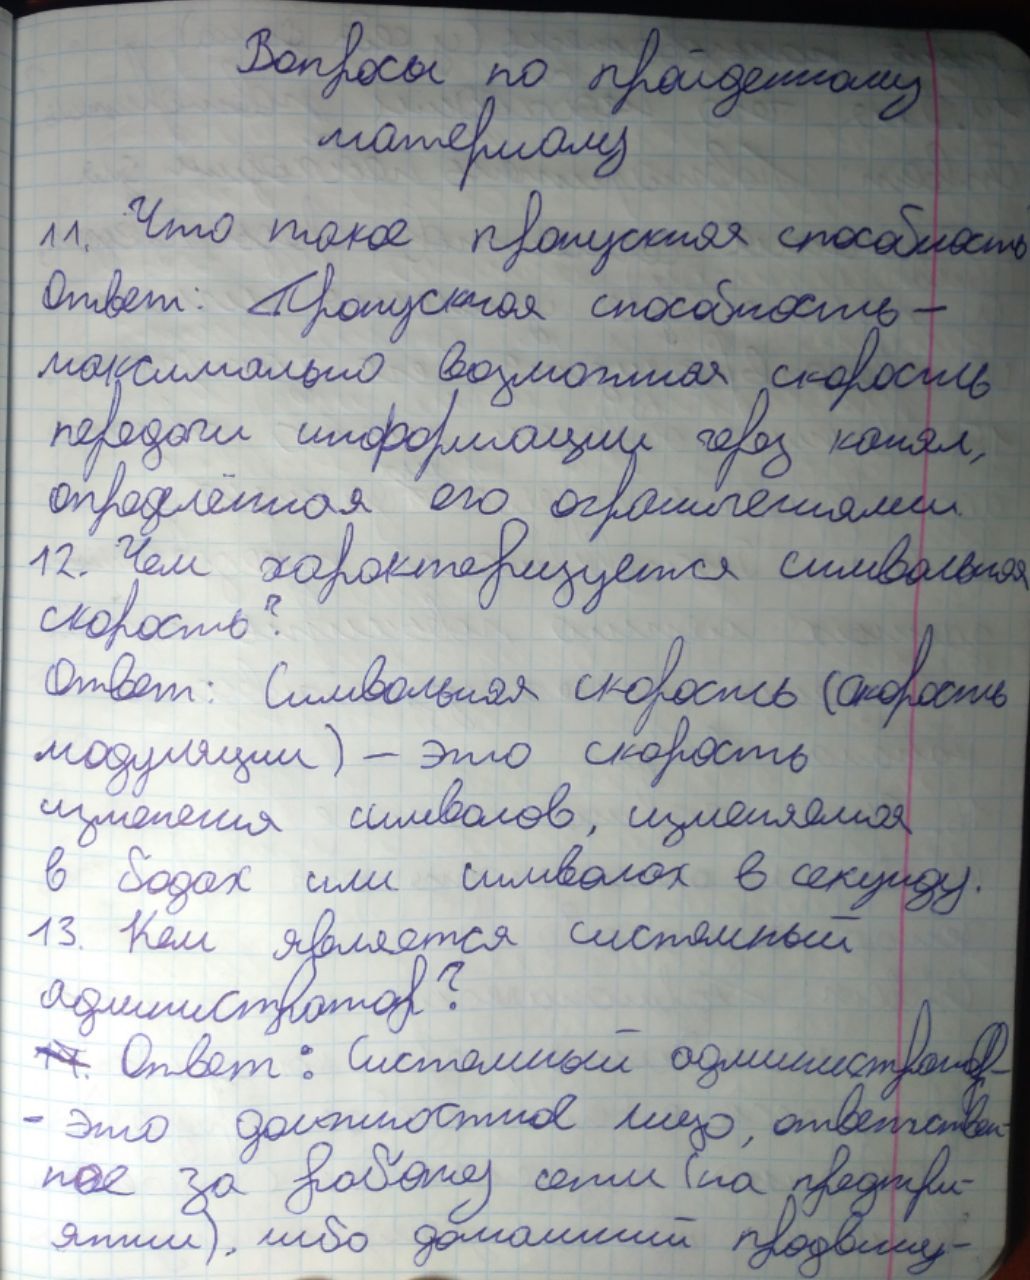 Вопросы по пройденному
материалу
11. Что такое пропускная способность
Ответ: Пропускная способность –
максимально возможная скорость
передачи информации через канал,
определённая его ограничениями.
12. Чем характеризуется символьная
скорость?
Ответ: Символьная скорость (скорость
модуляции) – это скорость
изменения символов, изменяемая
в бодах или символах в секунду.
13. Кем является системный
администратор?
14. Ответ: Системный администратор-
- это должностное лицо, ответствен-
ное за работу сети (на предпри-
ятии), либо домашний продвину-